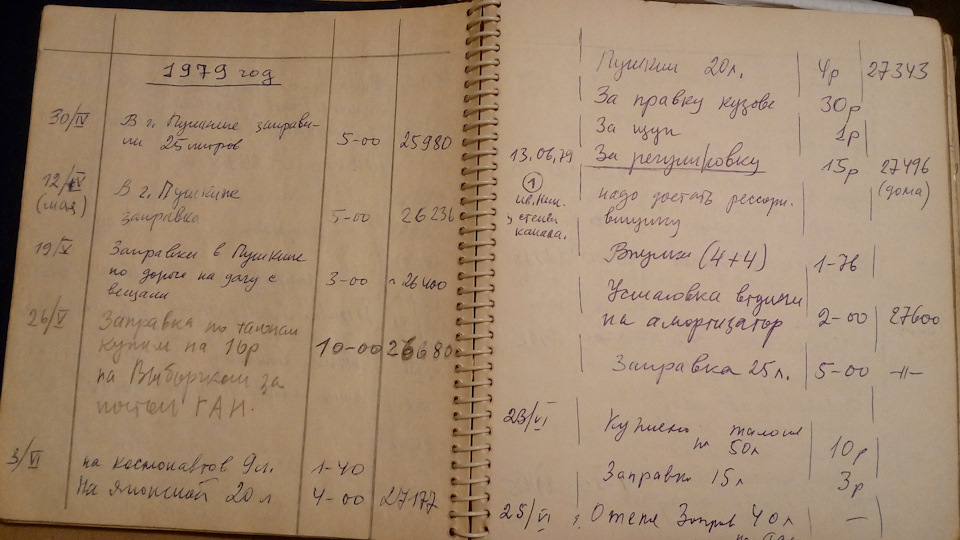 1979 год
30/IV В г. Пушкине заправи-
ли 25 литров 5-00 25980
12/V (мая) В г. Пушкине
заправка 5-00 26236
19/V Заправка в Пушкине
по дороге на дачу с 3-00 ~26400
вещами
26/V Заправка по талонам
купил на 10р 10-00 26680
на Выборгском за
постом ГАИ.
3/VI на космонавтов 9л. 1-40
На Японской 20л 4-00 27177
Пушкин 20л. 4р 27343
За правку кузова 30р
За щуп 1р
13.06.79 За регулировку 15р 27496
(дома)
1 надо достать рессорн.
втулку
канала.
Втулки (4+4) 1-76
Установка втулки
на амортизатор 2-00 27600
Заправка 25л. 5-00 -॥-
23/VI Куплены талоны
на 50л 10р
Заправка 15л 3р
25/VI Заправ 40л —